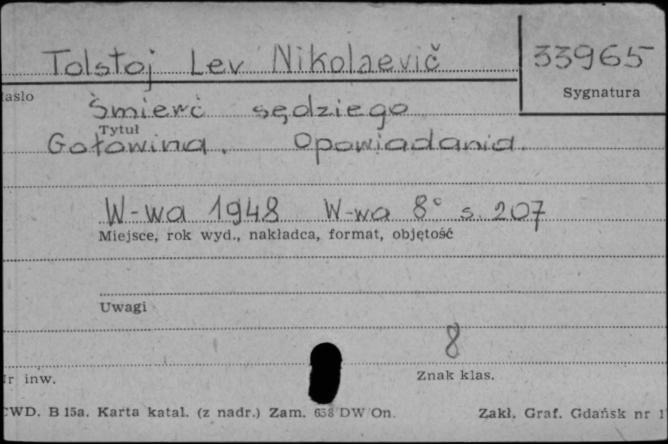 Tolstoj Lev Nikolaevič 33965
asło Sygnatura
Śmierć sędziego
Tytuł
Gołowina. Opowiadania.
W-wa 1948 W-wa 8° s. 207
Miejsce, rok wyd., nakładca, format, objętość
Uwagi
8
r inw. Znak klas.
CWD. B 15a. Karta katal. (z nadr.) Zam. 638 DW/On. Zakł. Graf. Gdańsk nr 1